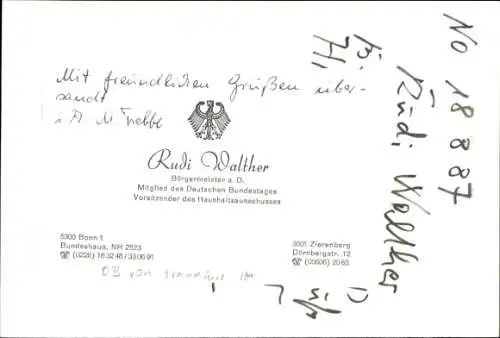 Mit freundlichen Grüßen über-
sandt
i. A. M. Trebbe
Rudi Walther
Bürgermeister a. D.
Mitglied des Deutschen Bundestages
Vorsitzender des Haushaltsausschusses
5300 Bonn 1
Bundeshaus, NH 2523
☎ (0228) 16 32 48 / 33 06 91
3501 Zierenberg
Dörnbergstr. 12
☎ (05606) 20 63
OB von Frankfurt
No 18 8 87
Rudi Walther